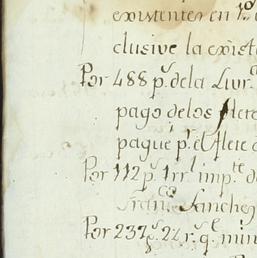 existentes en 1º
clusive la existe
Por 488 p.s de la Livr.
pago de los flete
pague p.r el flete d
Por 112 p.s 1 rr.l imp.te d
Fran.co Sanchez
Por 237 p.s 2 r.s q.e min